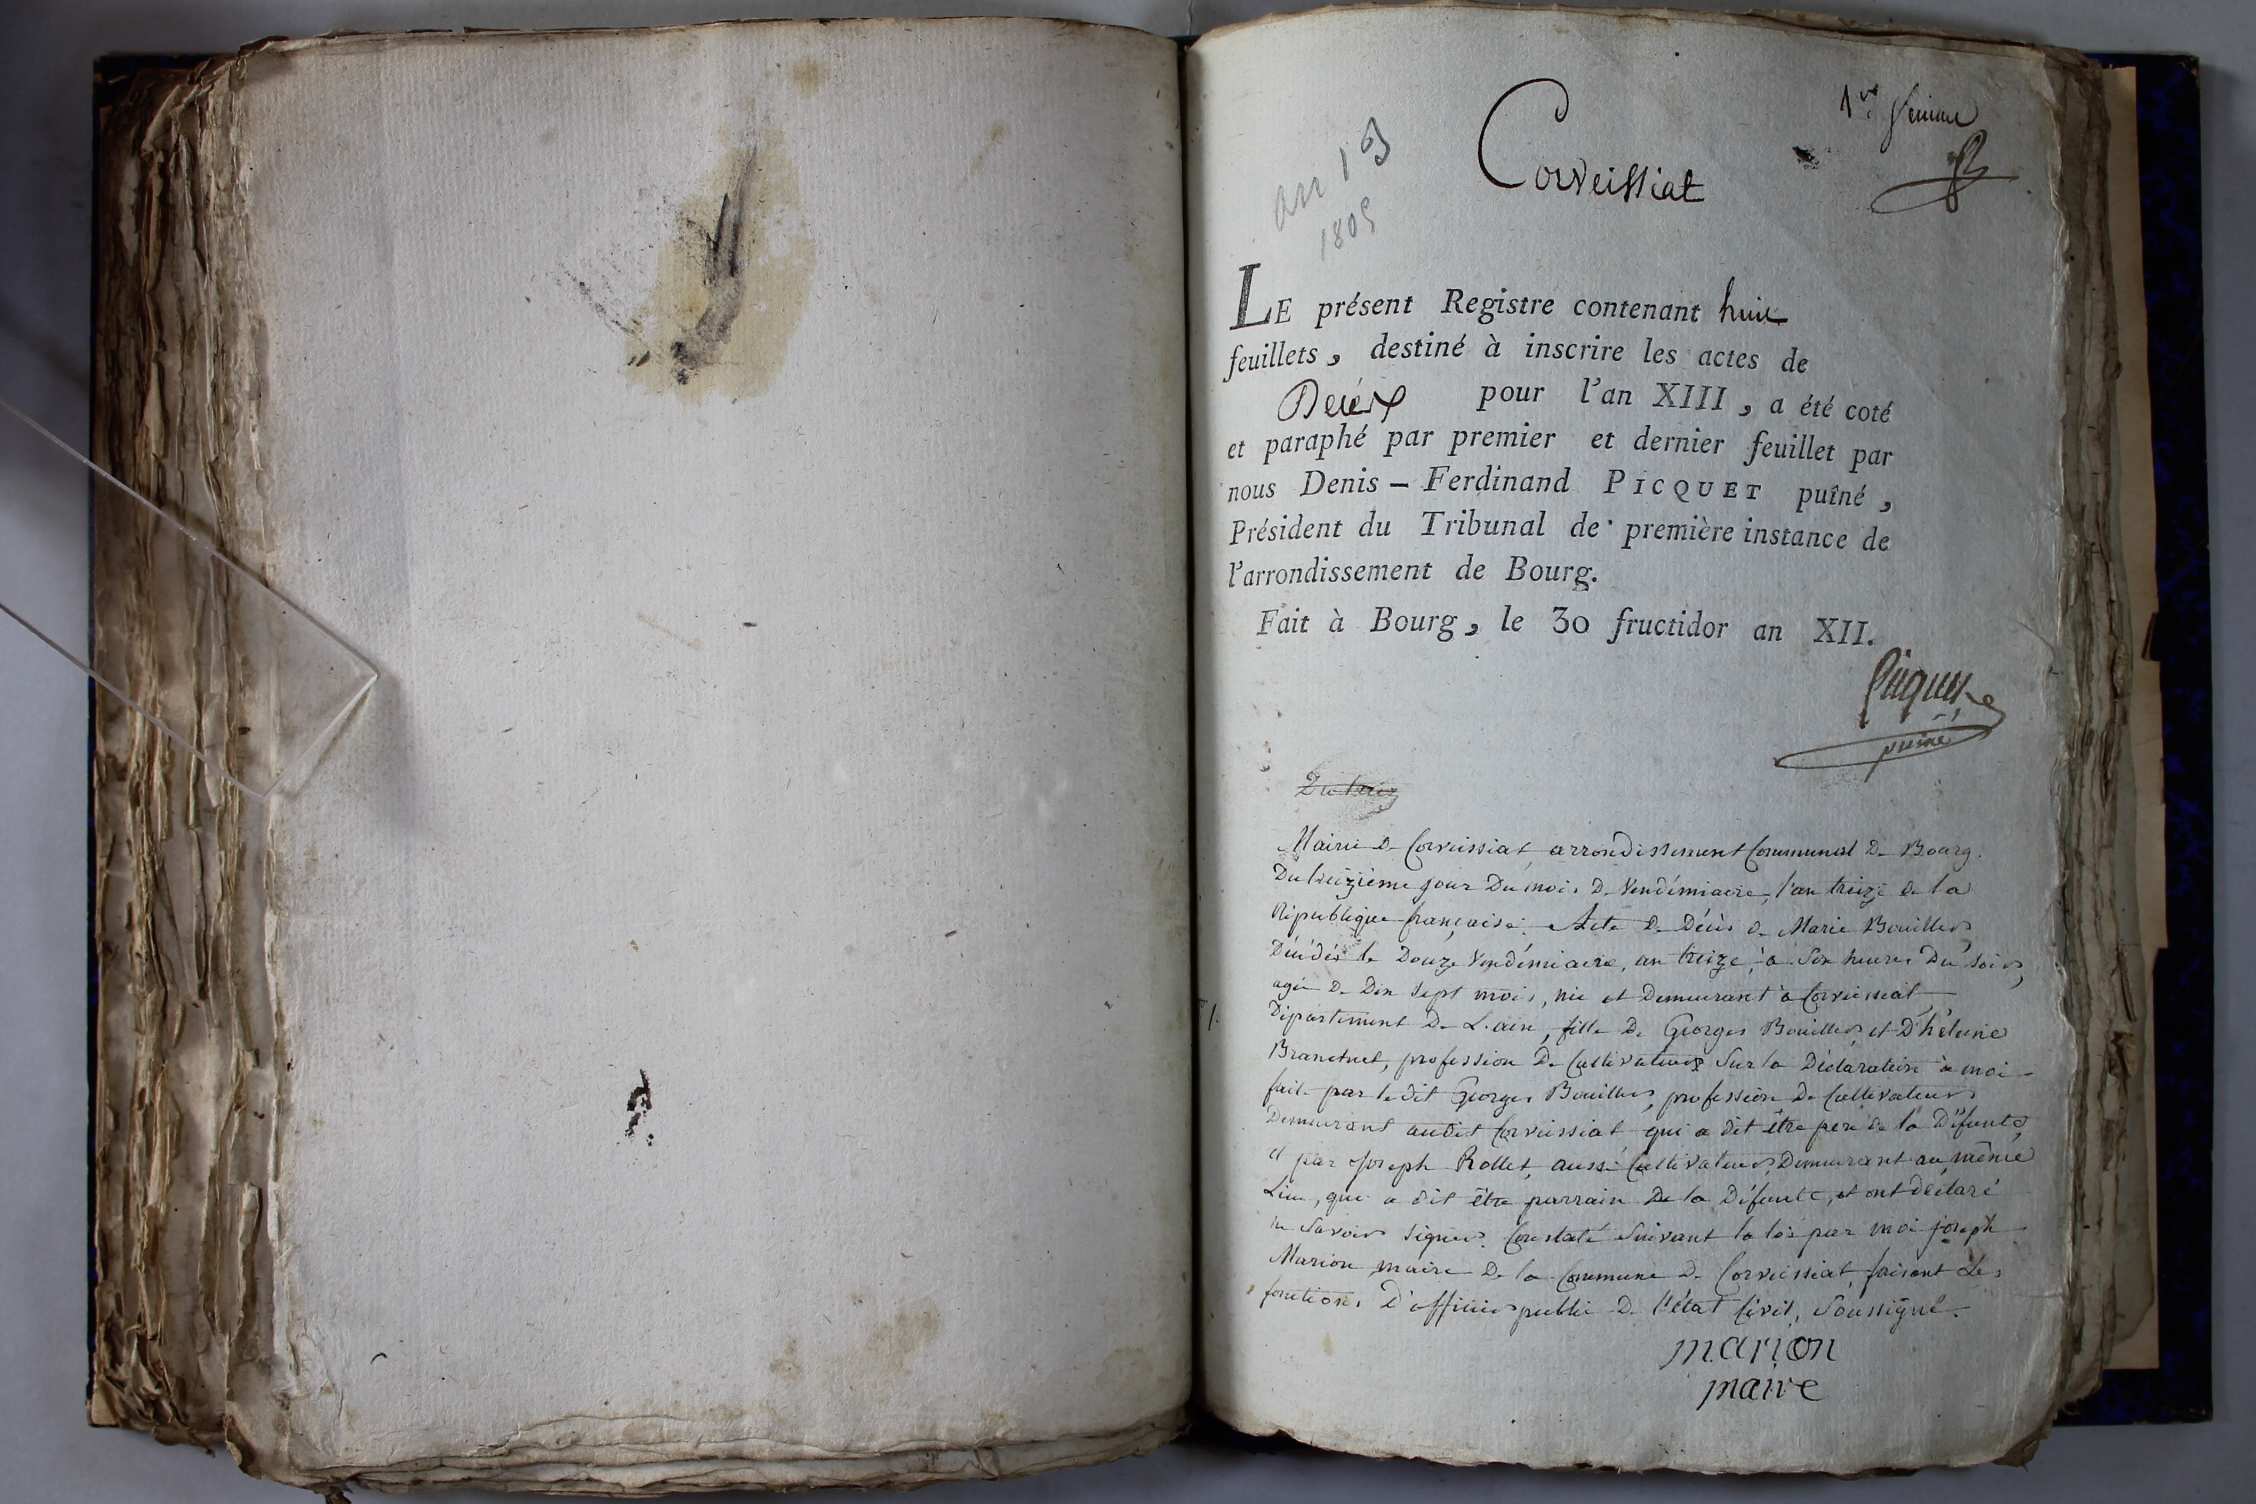 1er
Corveissiat
an 13
1805
LE présent Registre contenant huit
feuillets, destiné à inscrire les actes de
Décès pour l'an XIII, a été coté
et paraphé par premier et dernier feuillet par
nous Denis - Ferdinand PICQUET puîné,
Président du Tribunal de première instance de
l'arrondissement de Bourg.
Fait à Bourg, le 30 fructidor an XII.
Picquet
puiné
Mairie De Corveissiat arrondissement Communal De Bourg.
Du treizième jour Du mois De Vendémiaire, l'an treize De la
République française. Acte De Décès De Marie Bouiller
Décédée le Douze Vendémiaire, an treize, à Six heures Du soir,
agée De Dix sept mois, née et Demeurant à Corveissiat
Département De L'ain, fille De Georges Bouiller et D'héleine
profession De Cultivateur Sur la Déclaration à moi
faite par le dit Georges Bouiller, profession De Cultivateur
Demeurant audit Corveissiat qui a dit être père De la Défunte,
et par Joseph Rollet, aussi Cultivateur, Demeurant au même
Lieu, qui a dit être parrain De la Défunte, et ont déclaré
ne Savoir signer. Constaté Suivant la loi par moi joseph
Marion maire De la Commune De Corveissiat, faisant Les
fonctions D'officier public De l'état Civil, Soussigné.
marion
maire